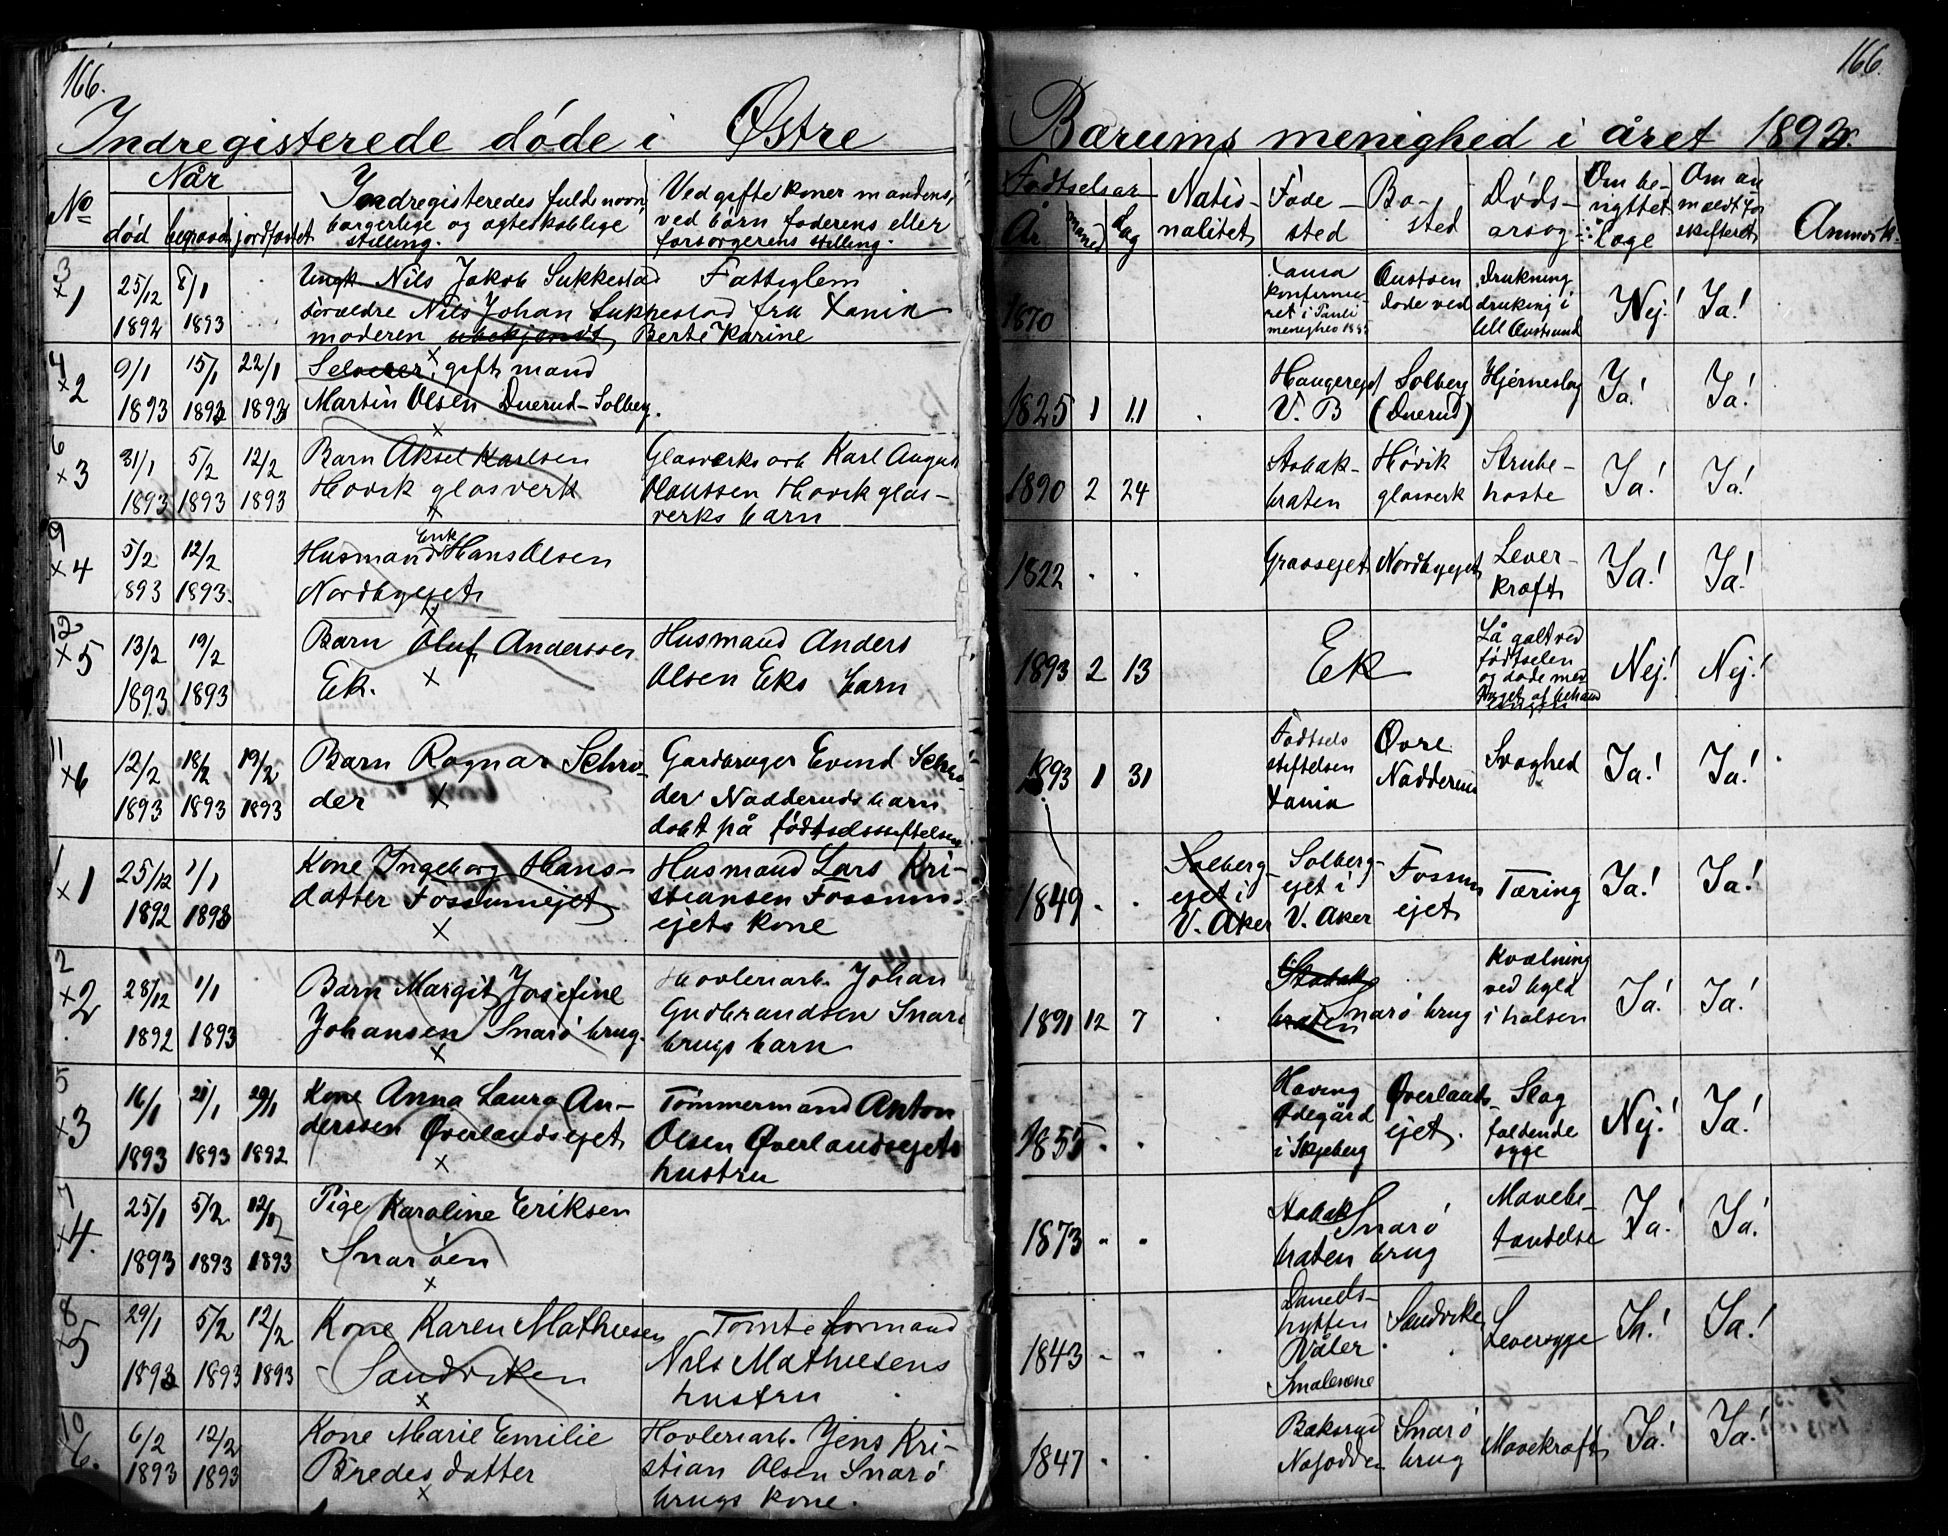 166.
166.
Indregisterede døde i Østre
Bærums menighed i året 1893.
No
Når
død begravet jordfæstet
Indregisteredes fulde navn,
borgerlige og ægteskablige
stilling.
Ved gifte koner mandens,
ved børn faderens eller
forsørgerens stilling.
Fødtselsår
År måned dag
Natio-
nalitet
Føde-
sted
Bo-
sted
Døds-
årsag
Om be-
nyttet
læge
Om an
mældt for
skifteret
Anmærk.
3
x 1
25/12 8/1
1892 1893
Ungk Nils Jakob Sukkestad
Fattiglem
forældre Nils Johan Sukkestad fra Xania
moderen ubekjendt, Berte Karine
1870
Xania
konfirme-
ret i Pauli
Drukning
druknet i
Nej! Ja!
4
x 2
9/1 15/1 22/1
1893 1893 1893
Selveier, gift mand
Martin Olsen Duerud-Solberg.
1825 1 11
V. B
Solberg
(Duerud)
Hjerneslag
Ja! Ja!
6
x 3
31/1 5/2 12/2
1893 1893 1893
Barn Aksel Karlsen
Høvik glasverk
Glasværks arb Karl August
Olaussen Høvik glas-
verks barn
1890 2 24
Stabæk-
braten
Høvik
glasverk
Strube-
hoste
Ja! Ja!
9
x 4
5/2 12/2
893 1893.
Erik
Husmand Hans Olsen
Nordbyejet
1822 . .
Gravsejet
Nordbyejet
Lever-
kræft
Ja! Ja!
12
x 5
13/2 19/2
1893 1893
Barn Oluf Anderssen
Ek. x
Husmand Anders
Olsen Eks barn
1893 2 13
Ek
Lå galt ved
fødtselen
og døde med
Nej! Nej!
11
x 6
12/2 18/2 19/2
1893 1893 1893
Barn Ragnar Schrø-
der x
Gårdbruger Evind Schrø-
der Nadderuds barn
døbt på fødtselsstiftelsen
1893 1 31
Fødtsels
stiftelsen
Xania
Øvre
Nadderud
Svaghed
Ja! Ja!
1
x 1
25/12 1/1
1892 1893
Kone Ingeborg Hans-
datter Fossumejet
x
Husmand Lars Kri-
stiansen Fossum-
ejets kone
1849 . .
Solberg-
ejet i
V. Aker
Solberg-
ejet i
V. Aker
Fossum
ejet
Tæring
Ja! Ja!
2
x 2
28/12 1/1
1892 1893
Barn Margit Josefine
Johansen Snarø brug.
x
Høvleriarb. Johan
Gudbrandsen Snarø
brugs barn
1891 12 7
Stabæk
braten
Snarø brug
Kvælning
ved byld
i halsen
Ja! Ja!
5
x 3
16/1 21/1 29/1
1893 1893 1892
Kone Anna Laura An-
derssen Øverlandsejet
x
Tømmermand Anton
Olsen Øverlandsejets
hustru
1855 . .
Having
Ødegård
i Skjeberg
Øverlands-
ejet.
Slag
faldende
syge
Nej! Ja!
7
x 4.
25/1 5/2 12/2
1893 1893 1893
Pige Karoline Eriksen
Snarøen
x
1873 . .
Stabæk
braten
Snarø
brug
Mavebe-
tændelse
Ja! Ja!
8
x 5
29/1 5/2 12/2
1893 1893 1893
Kone Karen Mathiesen
Sandviken
x
Tomteformand
Nils Mathiesens
hustru
1843 . .
Daneds-
hytten
Våler
Smålenene
Sandviken
Leversyge
Ja! Ja!
10
x 6.
6/2 12/2
1893 1893
Kone Marie Emilie
Bredesdatter
x
Høvleriarb. Jens Kri-
stian Olsen Snarø
brugs kone.
1847 . .
Bakerud
Næsodden
Snarø
brug
Mavekræft
Ja! Ja!